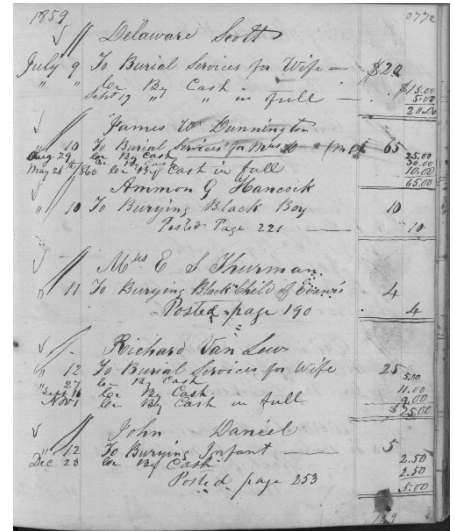 1859
Delaware Scott
July 9 To Burial Services for Wife — $20
" " Cr By Cash $15.00
Sept 19 " " in full — 5.00
20.00
James W Dunnington
" 10 To Burial Services for Mrs D 65
Aug 29 Cr By Cash 25.00
30.00
May 26th 1860 Cr By Cash in full 10.00
65.00
Ammon G Hancock
" 10 To Burying Black Boy 10
Posted Page 221 — 10
Mrs E S Thurman
" 11 To Burying Black Child of 4
Posted page 190 4
Richard Van Lew
" 12 To Burial Services for Wife 25
" 27 Cr By Cash 5.00
Sept 16 Cr By Cash 11.00
Nov 1 Cr By Cash in full 9.00
$25.00
John Daniel
" 12 To Burying Infant — 5
2.50
Dec 23 Cr By Cash 2.50
Posted page 253 5.00